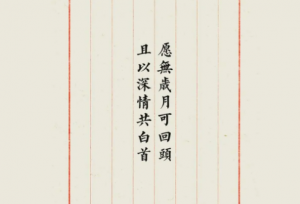 愿無歲月可回頭
且以深情共白首